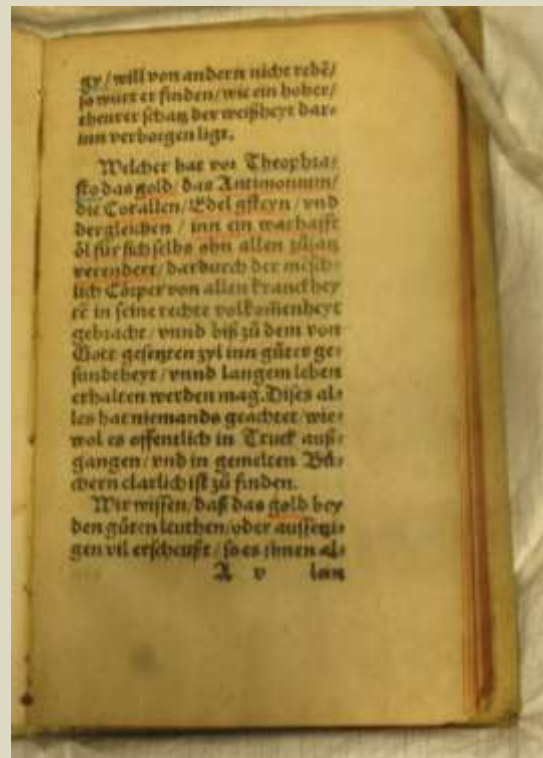 gy / will von andern nicht redē /
so würt er finden / wie ein hoher /
theurer schatz der weißheyt dar=
inn verborgen ligt.
Welcher hat vor Theophra=
sto das gold / das Antimonium /
die Corallen / Edel gsteyn / vnd
dergleichen / inn ein warhafft
öl für sich selbs ohn allen zůsatz
verendert / dardurch der mēsch=
lich Cörper von allen kranckhey
tē in seine rechte volkom̄enheyt
gebracht / vnnd biß zů dem von
Gott gesetzten zyl inn gůter ge=
sundtheyt / vnnd langem leben
erhalten werden mag. Dises al=
les hat niemands geachtet / wie=
wol es offentlich in Truck auß=
gangen / vnd in gemelten Bü=
chern clarlich ist zů finden.
Wir wissen / daß das gold bey
den gůten leuthen / oder aussetzi=
gen vil erscheußt / so es ihnen al=
A v lein